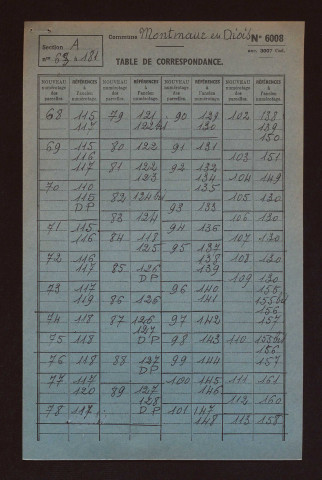 Section A
nos 63 à 181
Commune Montmaur en Diois
N° 6008
TABLE DE CORRESPONDANCE.
NOUVEAU numérotage des parcelles. RÉFÉRENCES à l'ancien numérotage. NOUVEAU numérotage des parcelles. RÉFÉRENCES à l'ancien numérotage. NOUVEAU numérotage des parcelles. RÉFÉRENCES à l'ancien numérotage. NOUVEAU numérotage des parcelles. RÉFÉRENCES à l'ancien numérotage.
68 115 79 121 90 129 102 138
117 122bis 130 139
150
69 115 80 122 91 131
116 103 151
117 81 122 92 132
123 134 104 149
70 110 135
115 82 124bis 105 130
DP 93 133
83 124 106 130
71 115 94 136
116 84 118 107 130
125 95 137
72 116 138 108 130
117 85 126 139
DP 109 130
73 117 96 140 155
119 86 126 141 155bis
156
74 118 87 126 97 142 157
127
75 118 DP 98 143 110 155bis
156
76 118 88 127 99 144 157
DP
77 117 100 145 111 161
120 89 127 146
128 112 160
78 117 DP 101 147
148 113 158